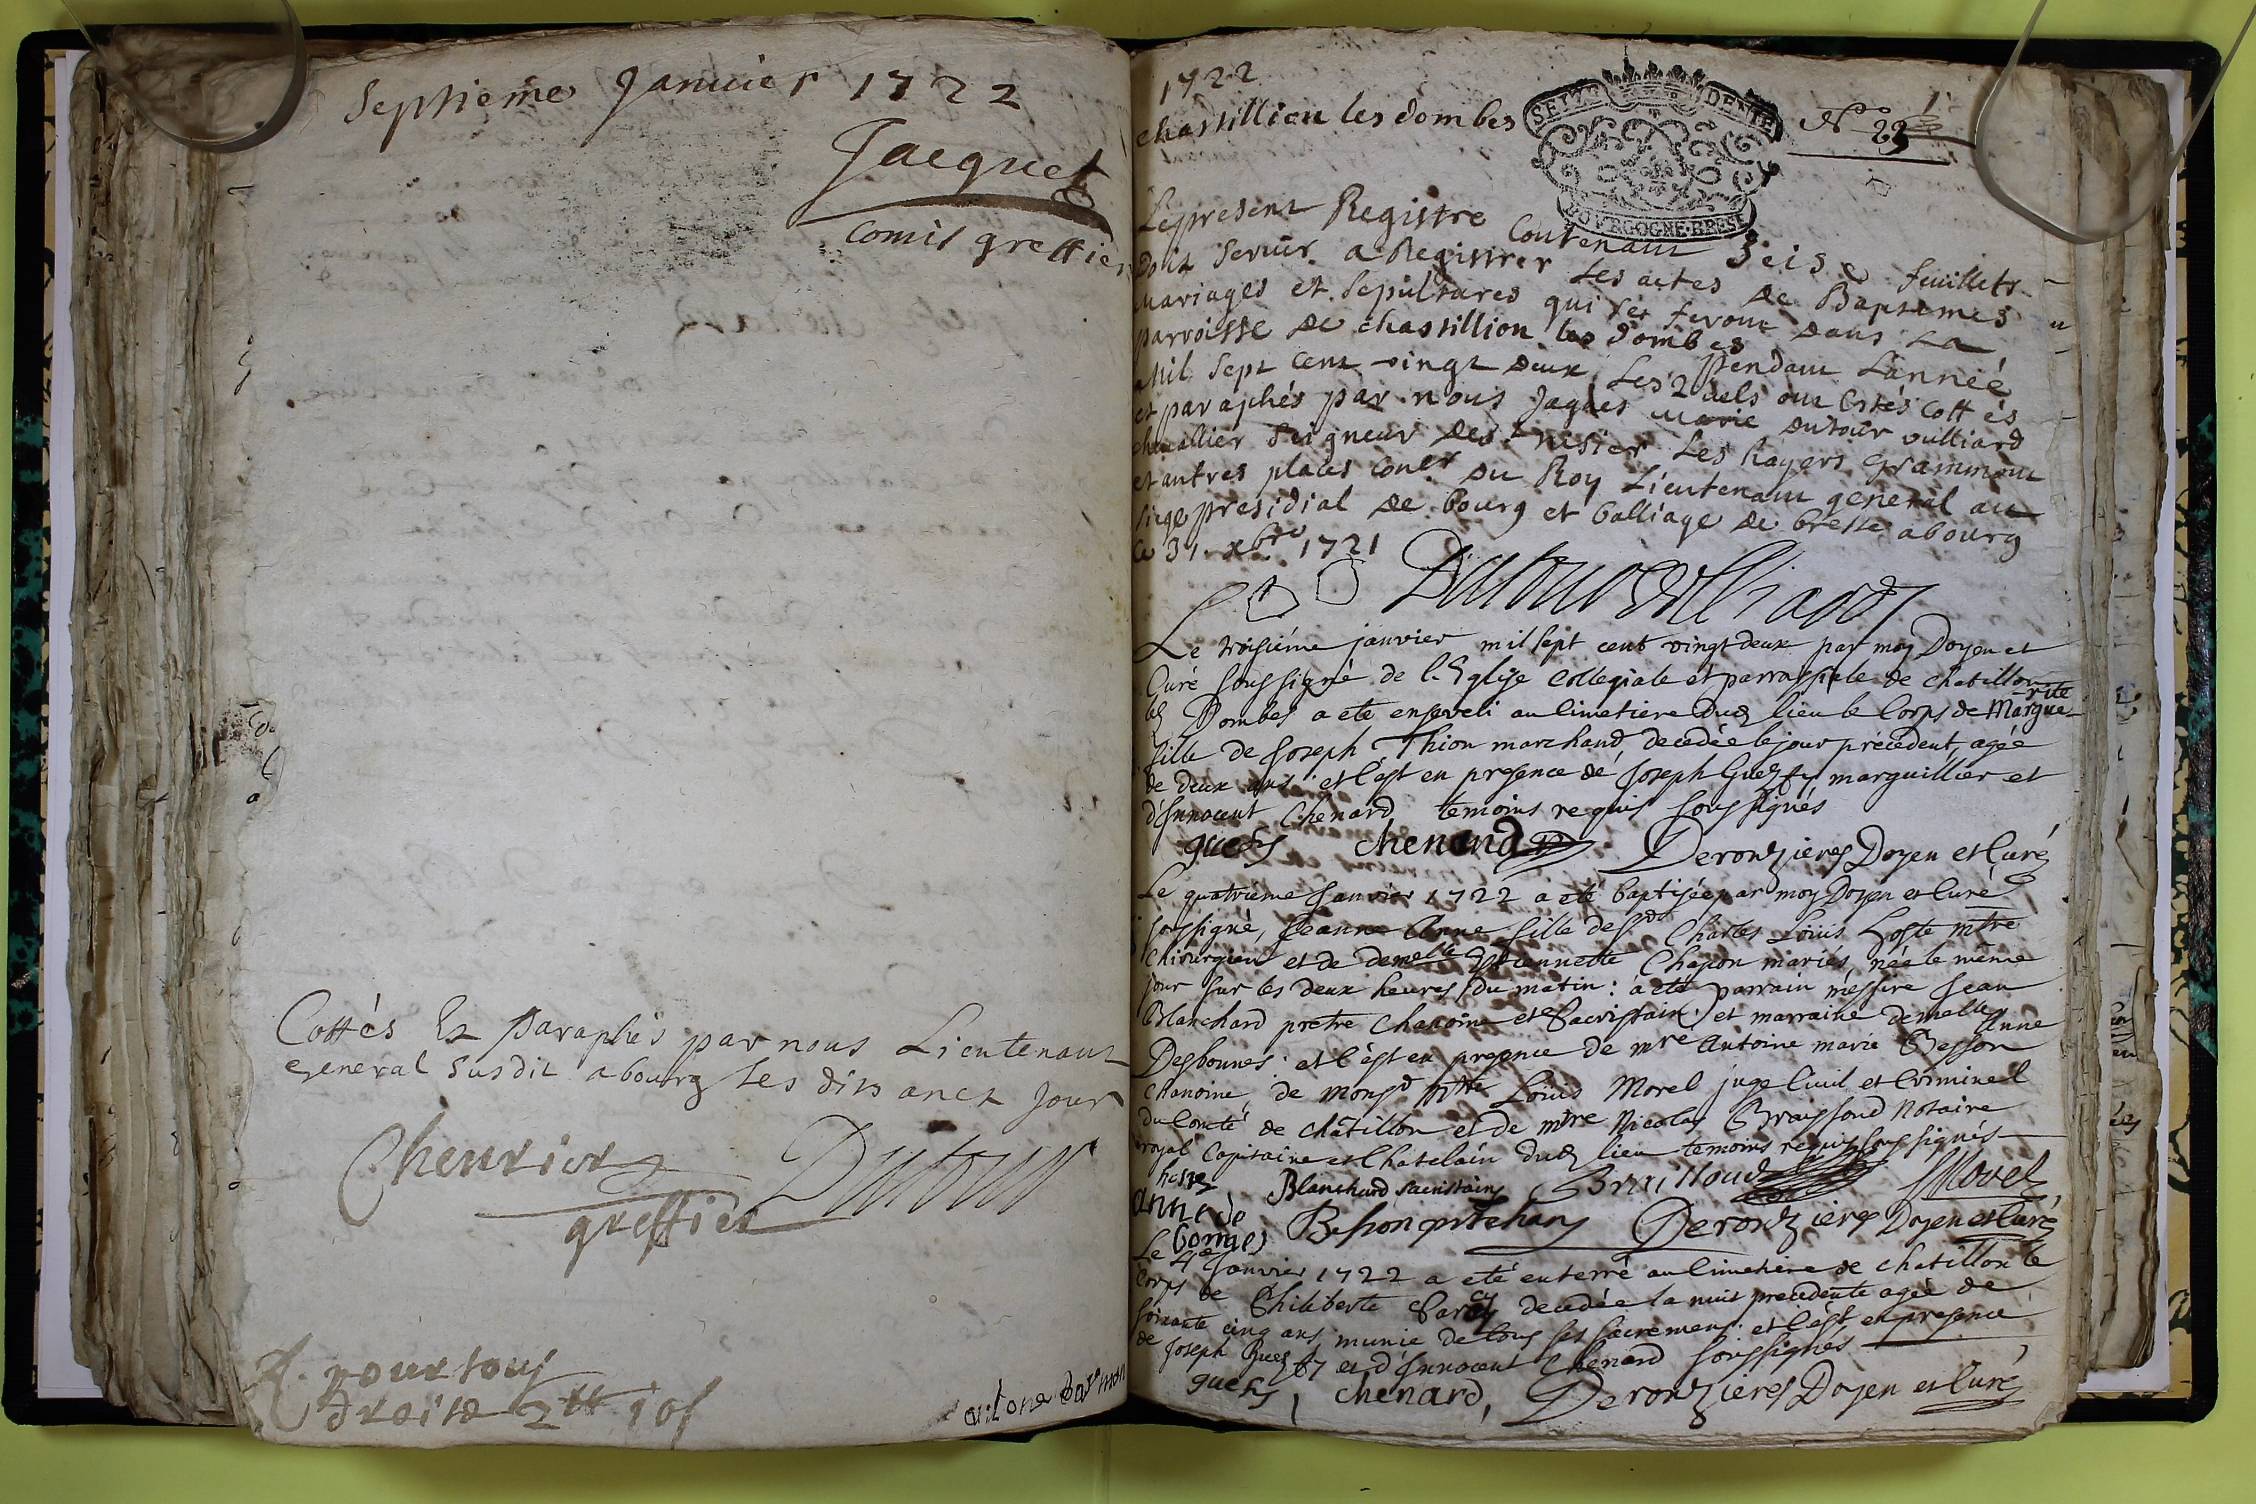 Septieme Janvier 1722
Jacquet
Comis greffier
Cottés Et Paraphés par nous Lieutenant
general Susdit a bourg les dits an et Jour
Chevrier Dutour
greffier
R. pour tous
droits 2tt 10s
1722
chastillion les dombes
SEIZE DENIE
BOVRGOGNE BRESSE
N° 23
Le present Registre Contenant Seise feuillets
Doit Servir a Registrer Les actes De Baptemes
Mariages et Sepultures qui se feront dans La
parroisse de chastillion les dombes Pendant Lanneé
Mil Sept Cent vingt Deux Lesquels ont Estés Cottés
et paraphés par nous Jaques Marie Dutour vulliard
chevallier Seigneur des
et autres places Coner Du Roy Lieutenant general au
Siege presidial De bourg et balliage De bresse abourg
Ce 31 xbre 1721
Dutour Vulliard
Le troisiéme janvier mil sept cent vingt deux par moy Doyen et
Curé soussigné de l'Eglise Collegiale et parrossiale de chatillon
les Dombes a eté enseveli au Cimetiere dud lieu le Corps de Margue-
-rite
fille de Joseph Thion marchand, decedée le jour précedent, agée
de deux ans: et c'est en presence de Joseph marguillier et
d'Innocent Chenard temoins requis soussignés
chenard Derontzieres Doyen et Curé
Le quatrieme Janvier 1722 a eté baptisée par moy Doyen et Curé
soussigné, Jeanne Anne fille de Sr Charles Loüis Hoste mtre
Chirurgien et de demelle Estiennette Chapon mariés, née le même
jour sur les deux heures du matin: a eté parrain messire Jean
Blanchard prêtre Chanoine et Sacristain, et marraine demelle Anne
Desbonnes: et c'est en presence de mre Antoine marie Besson
Chanoine, de monsr mtre Loüis Morel juge Civil et Criminel
du Comté de châtillon et de mtre Nicolas Braissoud Notaire
royal Capitaine et Chatelain dud lieu temoins requis soussignés
Blanchard sacristain Braissoud Morel
anne de
bonnes
Besson Derontzieres Doyen et Curé
Le 4e Janvier 1722 a eté enterré au Cimetiere de chatillon le
Corps de Philiberte decedée la nuit precedente agée de
soixante cinq ans, munie de tous les sacremens: et c'est en presence
de Joseph et d'Innocent Chenard soussignés
chenard, Derontzieres Doyen et Curé